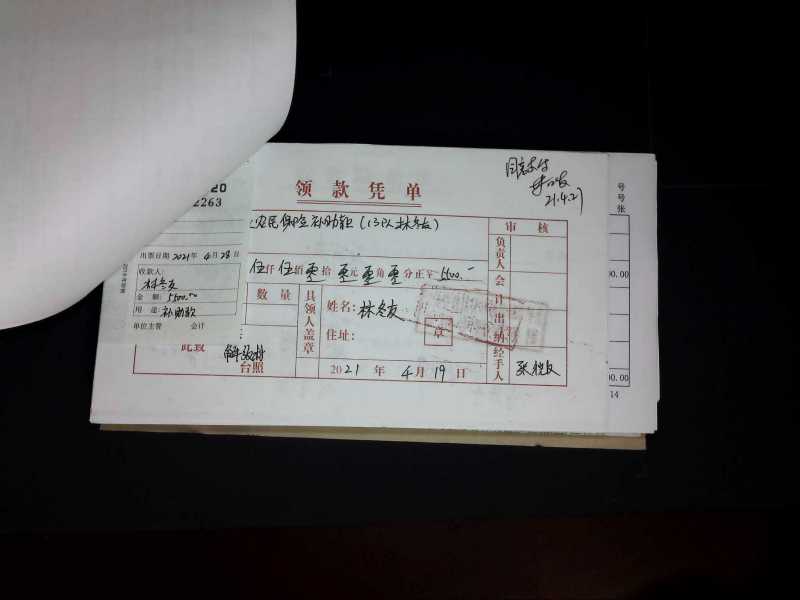 同意支付
21.4.27
20
2263
领款凭单
农民保险补助款(13队林冬友)
审核
负责人
号
号
张
出票日期 2021年 4月 28日
收款人:
林冬友
金额: 5500.00
用途: 补助款
单位主管 会计
伍仟伍佰零拾零元零角零分正¥ 5500.—
会计
00.00
数量
具领人盖章
姓名: 林冬友
住址:
章
出纳
此致
台照
2021年 4月 19日
经手人
00.00
14